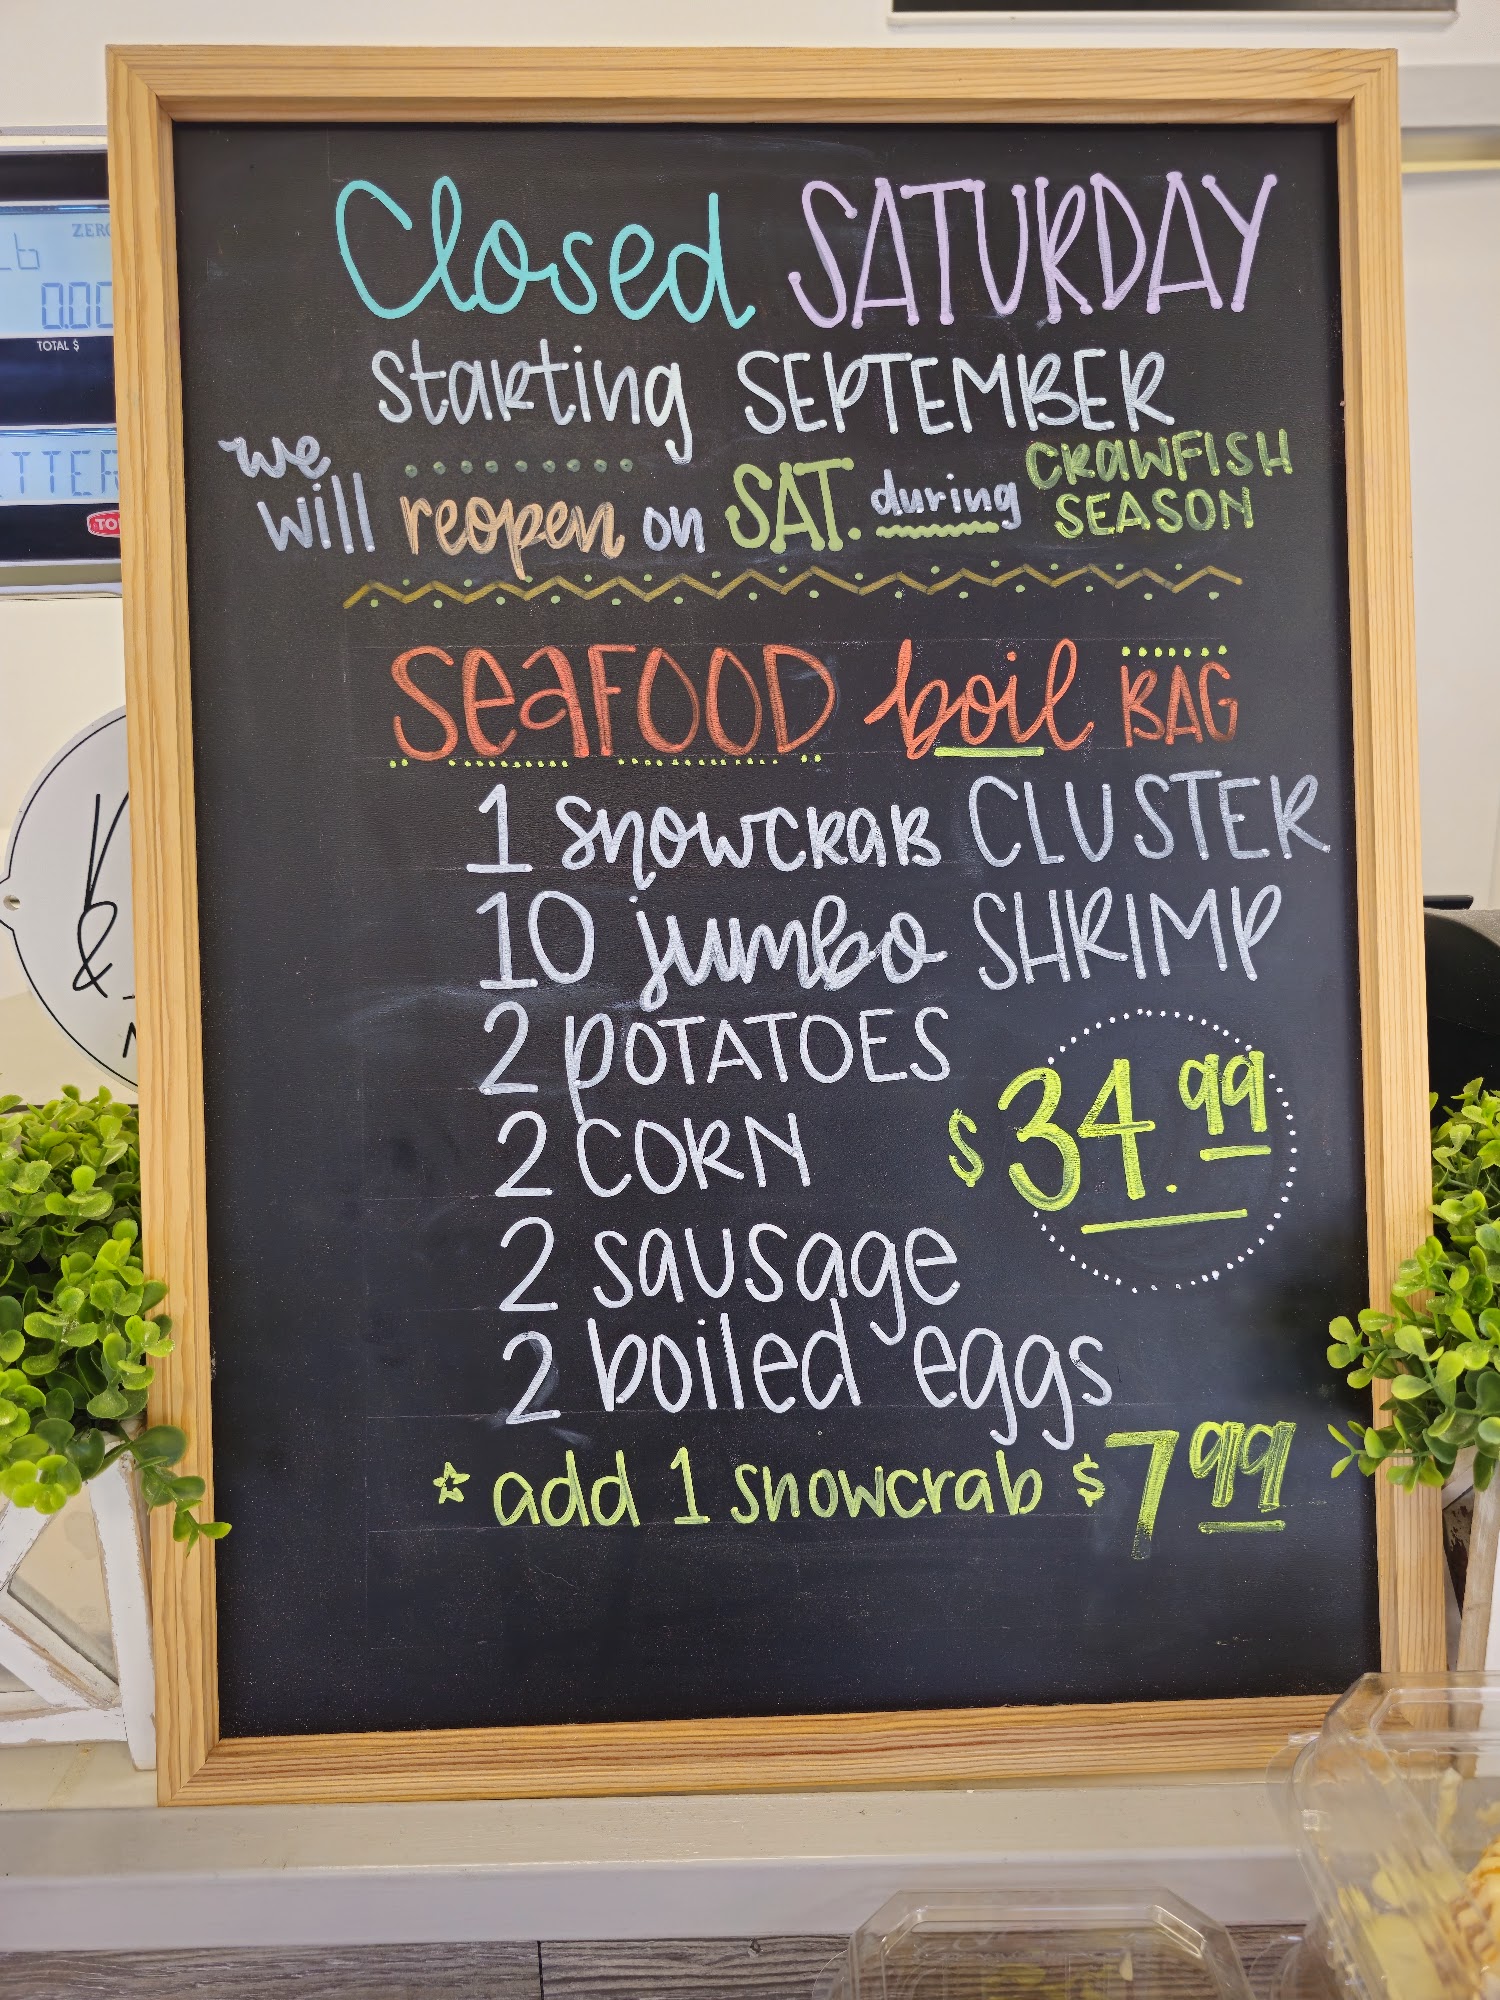 Closed SATURDAY
starting SEPTEMBER
we will reopen on SAT. during CRAWFISH SEASON
SeaFOOD boil BAG
1 snowcrab CLUSTER
10 jumbo SHRIMP
2 POTATOES
2 CORN
$34.99
2 sausage
2 boiled eggs
* add 1 snowcrab $7.99
ZERO
0.00
TOTAL $
&